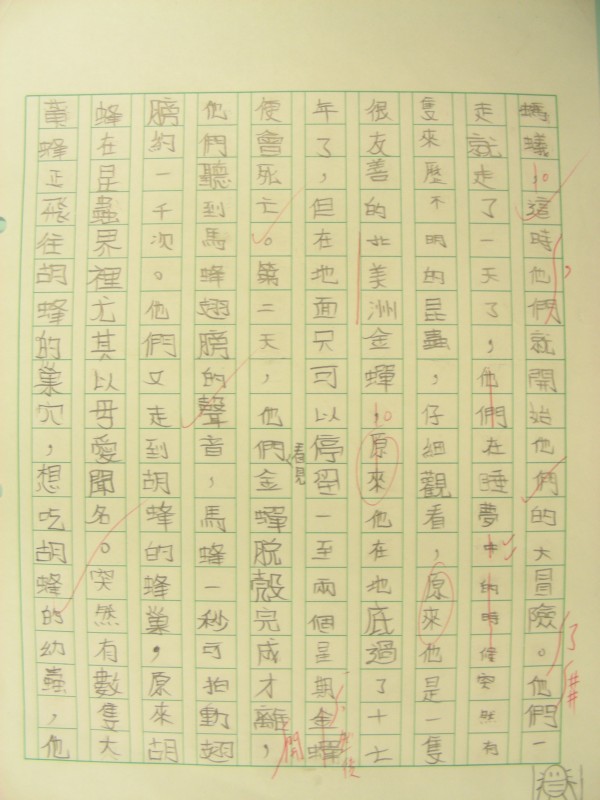 螞蟻，這時他們就開始他們的大冒險。他們一
走就走了一天了，他們在睡夢中的時候突然有
隻來歷不明的昆蟲，仔細觀看，原來他是一隻
很友善的北美洲金蟬，原來他在地底過了十七
年了，但在地面只可以停留一至兩個星期金蟬
便會死亡。第二天，他們看見金蟬脫殼完成才離，開
他們聽到馬蜂翅膀的聲音，馬蜂一秒可拍動翅
膀約一千次。他們又走到胡蜂的蜂巢，原來胡
蜂在昆蟲界裡尤其以母愛聞名。突然有數隻大
黃蜂正飛往胡蜂的巢穴，想吃胡蜂的幼蟲，他